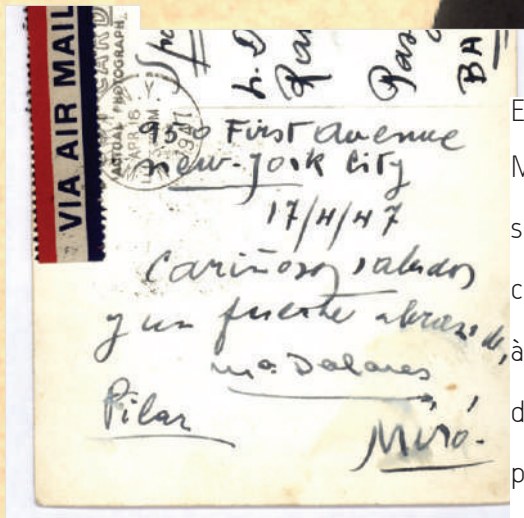 VIA AIR MAIL
ACTUAL PHOTOGRAPH
APR 18
1947
BA
950 First avenue
new-york city
17/4/47
Cariñosos saludos
y un fuerte abrazo de,
Mª. Dolores
Pilar
Miró.
E
M
s
c
à
d
p